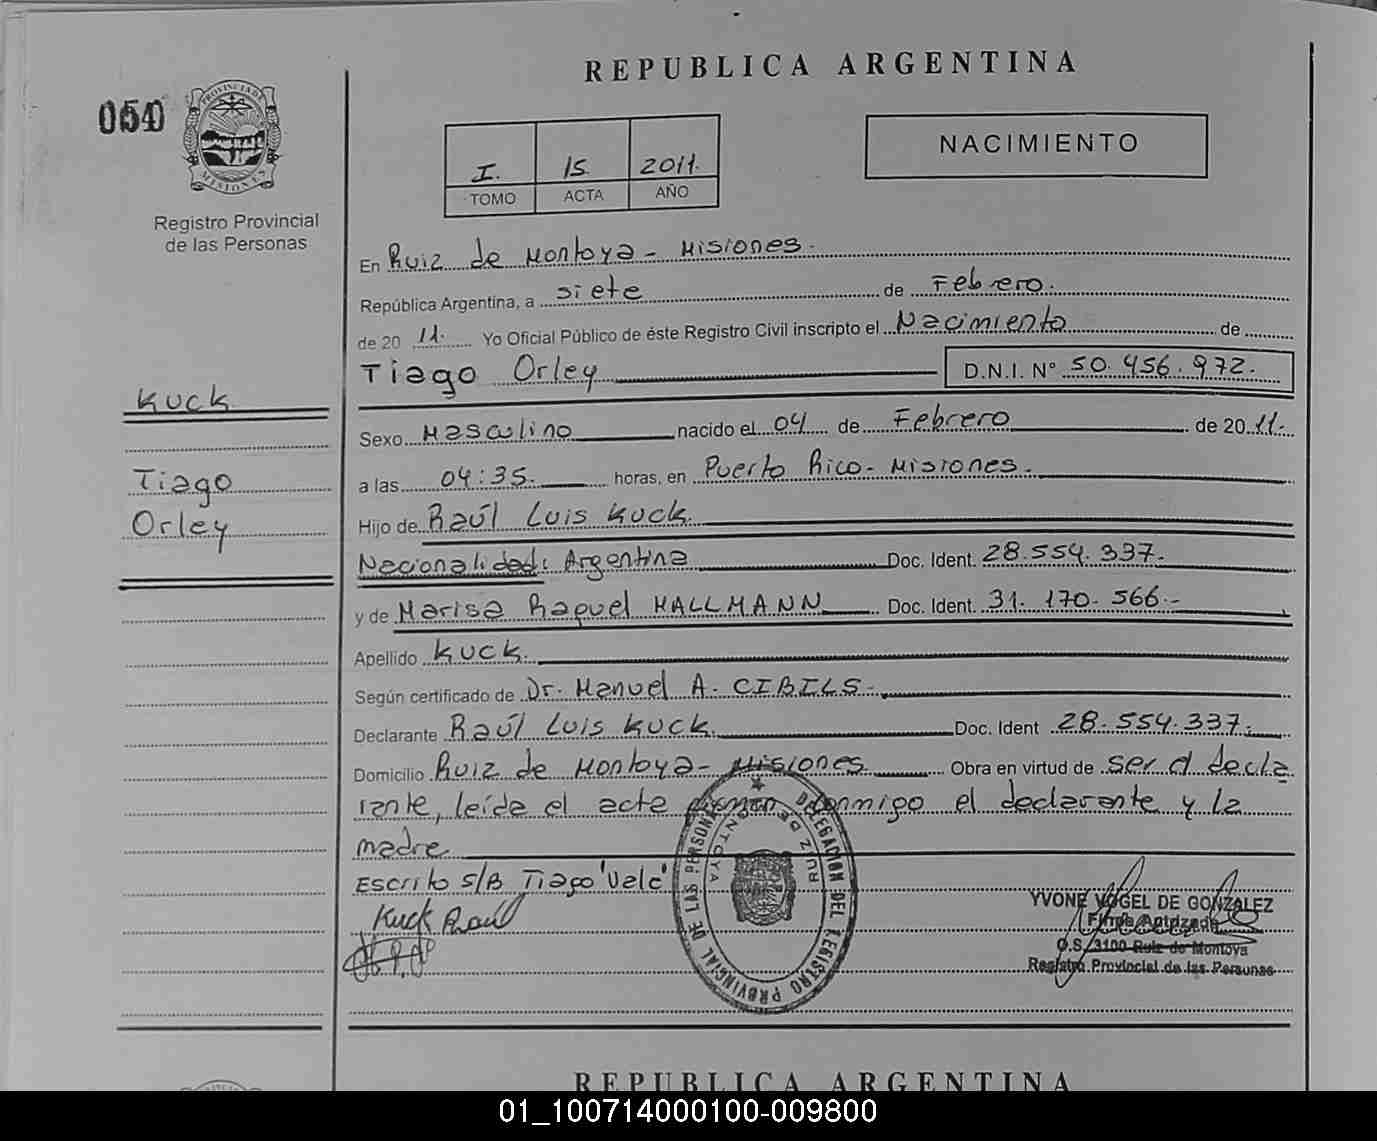 REPUBLICA ARGENTINA
PROVINCIA DE
MISIONES
Registro Provincial
de las Personas
I. 15 2011.
TOMO ACTA AÑO
NACIMIENTO
En Ruiz de Montoya - Misiones.
República Argentina, a siete de Febrero.
de 20 11. Yo Oficial Público de éste Registro Civil inscripto el Nacimiento de
Tiago Orley D.N.I. Nº 50.456.972.
KUCK
Tiago
Orley
Sexo Masculino nacido el 04 de Febrero de 20 11.
a las 04:35. horas, en Puerto Rico - Misiones.
Hijo de Raúl Luis Kuck
Nacionalidad: Argentina Doc. Ident. 28.554.337.
y de Marisa Raquel HALLMANN Doc. Ident. 31.170.566.-
Apellido KUCK.
Según certificado de Dr. Manuel A. CIBILS.-
Declarante Raúl Luis Kuck. Doc. Ident 28.554.337.
Domicilio Ruiz de Montoya - Misiones Obra en virtud de ser el decla
rante, leída el acta firman conmigo el declarante y la
madre
Escrito S/B Tiago "Vale"
Kuck Raúl
DELEGACION DEL REGISTRO PROVINCIAL DE LAS PERSONAS
RUIZ DE MONTOYA
YVONE VOGEL DE GONZALEZ
Firma Autorizada
O.S. 3100 Ruiz de Montoya
Registro Provincial de las Personas
REPUBLICA ARGENTINA
01_100714000100-009800